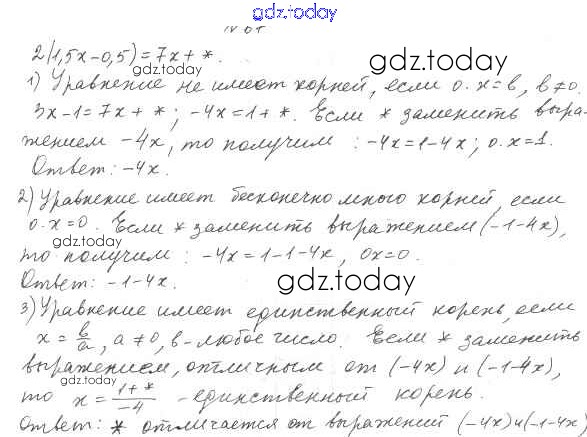 gdz.today
2(1,5x-0,5)=7x+*.
gdz.today
gdz.today
1) Уравнение не имеет корней, если 0·x=b, b≠0.
3x-1=7x+*; -4x=1+*. Если * заменить выра-
жением -4x, то получим: -4x=1-4x; 0·x=1.
gdz.today
Ответ: -4x.
2) Уравнение имеет бесконечно много корней, если
0·x=0. Если * заменить выражением (-1-4x),
gdz.today
то получим: -4x=1-1-4x, 0x=0.
Ответ: -1-4x.
gdz.today
3) Уравнение имеет единственный корень, если
x=b/a, a≠0, b-любое число. Если * заменить
выражением, отличным от (-4x) и (-1-4x),
gdz.today
то x=1+*/-4 - единственный корень.
Ответ: * отличается от выражений (-4x) и (-1-4x)